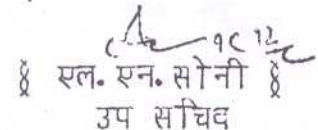 § एल. एन. सोनी §
उप सचिव